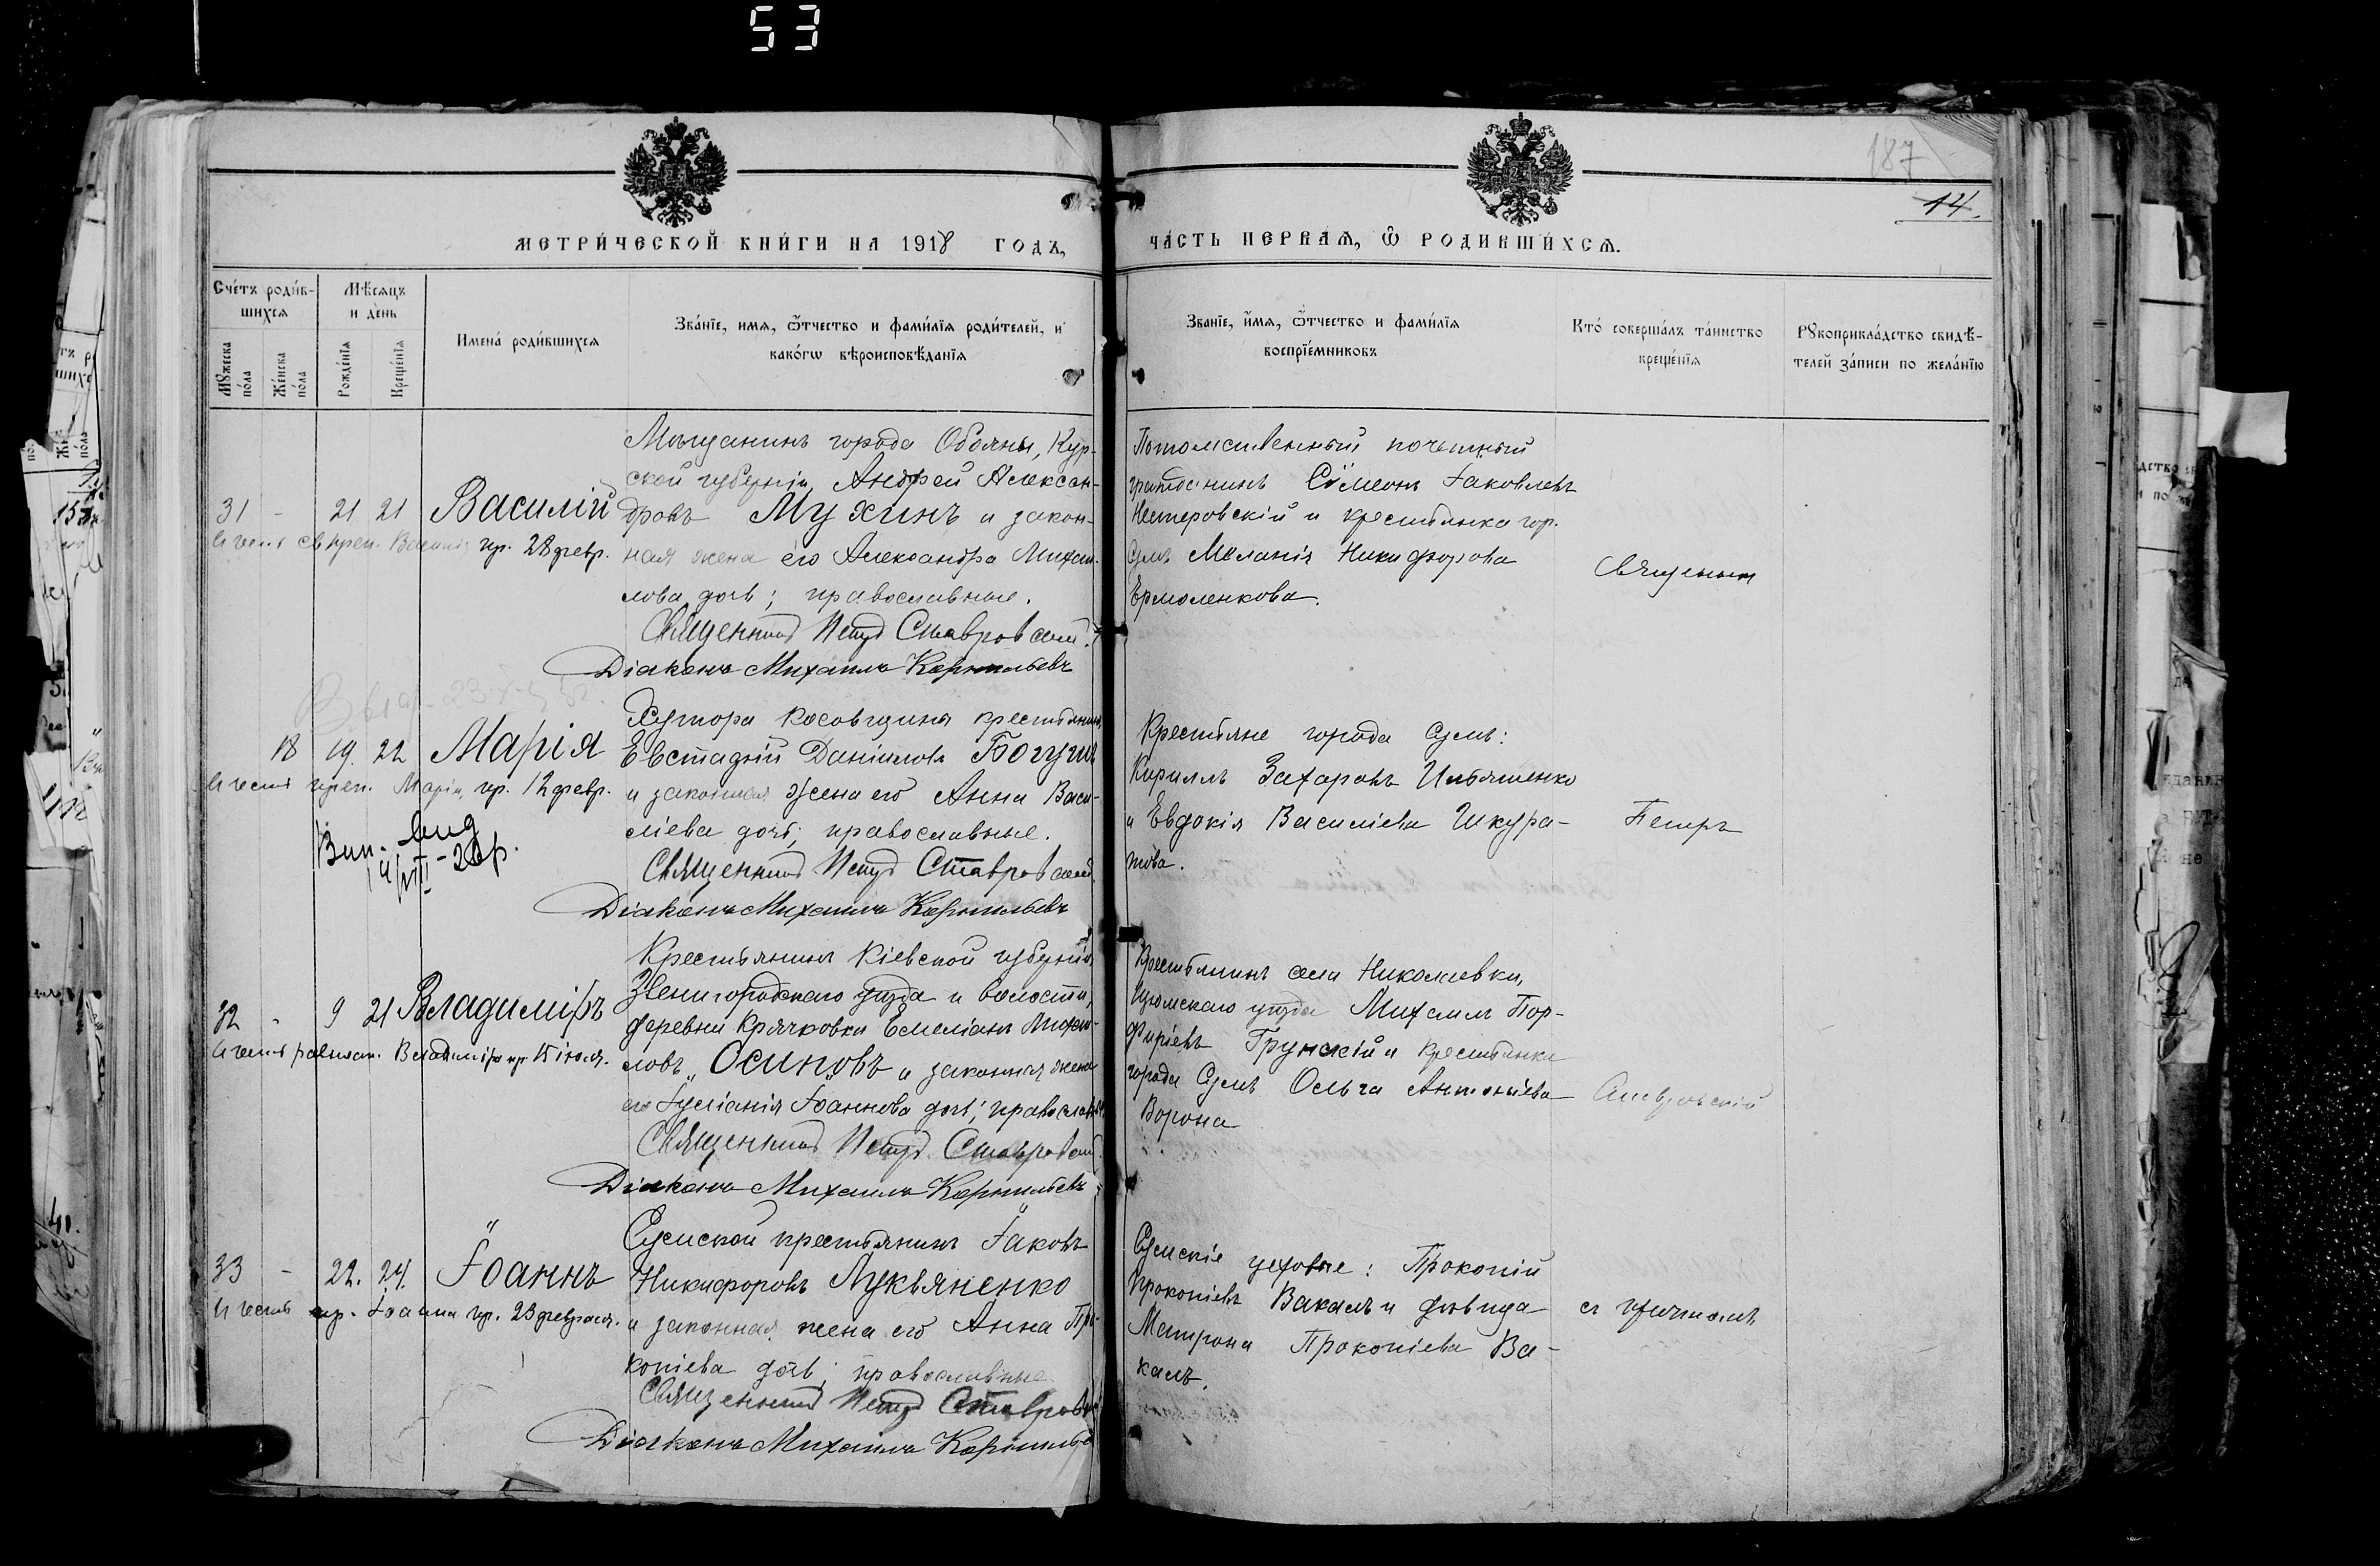 53
187
14.
МЕТРИ́ЧЕСКОЙ КНИ́ГИ НА 1918 ГОДЪ,
ЧА́СТЬ ПЕРВАѦ, Ѽ РОДИВШИ́ХСѦ.
Сче́тъ роди́в-
шихсѧ
Мѣ́сѧцъ
и де́нь
Мꙋ́жеска
по́ла
Же́нска
по́ла
Рожде́нїѧ
Креще́нїѧ
Имена́ роди́вшихсѧ
Зва́нїе, имѧ, ѻ҆́тчество и фами́лїѧ роди́телей, и
како́гѡ вѣроисповѣ́данїѧ
Зва́нїе, и҆́мѧ, ѻ҆́тчество и фами́лїѧ
воспрїе́мниковъ
Кто́ соверша́лъ та́инство
креще́нїѧ
Рꙋкоприкла́дство свидѣ́-
телей за́писи по жела́нїю
31 - 21 21 Василій
въ честь св. преп. Василія, пр. 28 февр.
Мѣщанинъ города Обояни, Кур-
ской губерніи, Андрей Алексан-
дровъ Мухинъ и закон-
ная жена его Александра Михаи-
лова дочь; православные.
Священникъ Петръ Ставровскій
Діаконъ Михаилъ Корнильевъ
Потомственный почетный
гражданинъ Сѵмеонъ Іаковлевъ
Нестеровскій и крестьянка гор.
Сумъ Меланія Никифорова
Ермоленкова.
Священникъ
18 19. 22 Марія
въ честь преп. Маріи, пр. 12 февр.
Вып. вид
Хутора Косовщины крестьянинъ
Евстафій Даніиловъ Богунъ
и законная жена его Анна Васи-
ліева дочь; православные.
Священникъ Петръ Ставровскій
Діаконъ Михаилъ Корнильевъ
Крестьяне города Сумъ:
Кириллъ Захаровъ Ильяшенко
и Евдокія Василіева Шкура-
това.
Петръ
32 - 9 21 Владиміръ
въ честь равноап. Владиміра пр. 15 іюля.
Крестьянинъ Кіевской губерніи,
Звенигородскаго уѣзда и волости,
деревни Крячковки Емеліанъ Михаи-
ловъ „Осиповъ“ и законная жена
его Іуліанія Іоаннова дочь; православные.
Священникъ Петръ Ставровскій
Діаконъ Михаилъ Корнильевъ
Крестьянинъ села Николаевки,
Изюмскаго уѣзда Михаилъ Пор-
фиріевъ Грунскій и крестьянка
города Сумъ Ольга Антоніева
Ворона
Ставровскій
33 - 22. 24. Іоаннъ
въ честь пр. Іоанна пр. 23 февраля.
Сумской крестьянинъ Іаковъ
Никифоровъ Лукьяненко
и законная жена его Анна Про-
копіева дочь; православные
Священникъ Петръ Ставровскій
Діаконъ Михаилъ Корнильевъ
Сумскіе цеховые: Прокопій
Прокопіевъ Вакалъ и дѣвица
Матрона Прокопіева Ва-
калъ.
съ причтомъ